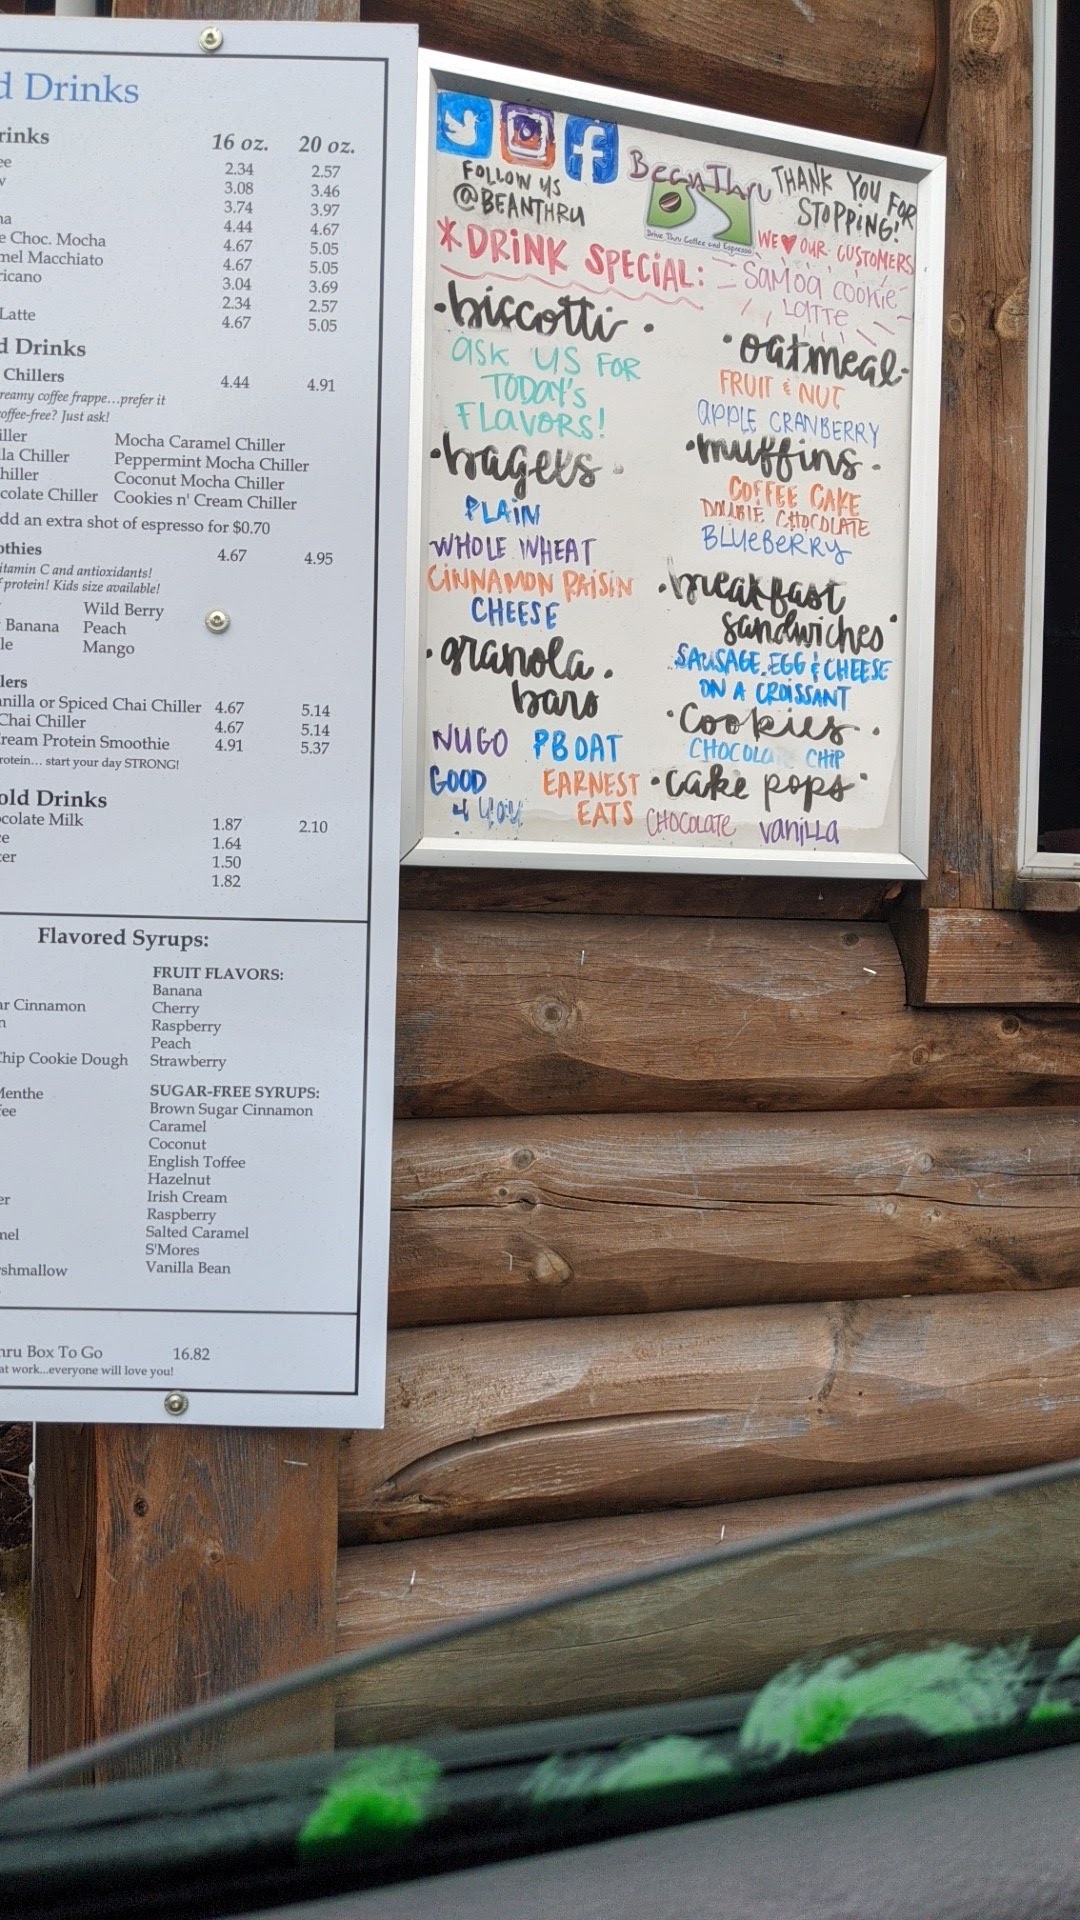 d Drinks
rinks 16 oz. 20 oz.
ee 2.34 2.57
w 3.08 3.46
3.74 3.97
ha 4.44 4.67
e Choc. Mocha 4.67 5.05
mel Macchiato 4.67 5.05
ricano 3.04 3.69
2.34 2.57
Latte 4.67 5.05
d Drinks
Chillers 4.44 4.91
reamy coffee frappe...prefer it
offee-free? Just ask!
iller Mocha Caramel Chiller
lla Chiller Peppermint Mocha Chiller
hiller Coconut Mocha Chiller
colate Chiller Cookies n' Cream Chiller
dd an extra shot of espresso for $0.70
othies 4.67 4.95
itamin C and antioxidants!
f protein! Kids size available!
Wild Berry
Banana Peach
le Mango
lers
anilla or Spiced Chai Chiller 4.67 5.14
Chai Chiller 4.67 5.14
ream Protein Smoothie 4.91 5.37
rotein... start your day STRONG!
old Drinks
colate Milk 1.87 2.10
ce 1.64
ter 1.50
1.82
Flavored Syrups:
FRUIT FLAVORS:
Banana
ar Cinnamon Cherry
n Raspberry
Peach
Chip Cookie Dough Strawberry
Menthe SUGAR-FREE SYRUPS:
fee Brown Sugar Cinnamon
Caramel
Coconut
English Toffee
Hazelnut
er Irish Cream
Raspberry
mel Salted Caramel
S'Mores
rshmallow Vanilla Bean
hru Box To Go 16.82
at work...everyone will love you!
FOLLOW US
@BEANTHRU
BeanThru
Drive Thru Coffee and Espresso
THANK YOU FOR
STOPPING!
WE ❤ OUR CUSTOMERS
*DRINK SPECIAL:
SAMOA COOKIE
LATTE
•biscotti•
ASK US FOR
TODAY'S
FLAVORS!
•bagels•
PLAIN
WHOLE WHEAT
CINNAMON RAISIN
CHEESE
•granola•
bars
NUGO PB OAT
GOOD EARNEST
4 YOU EATS
•oatmeal•
FRUIT & NUT
APPLE CRANBERRY
•muffins•
COFFEE CAKE
DOUBLE CHOCOLATE
BLUEBERRY
•breakfast
sandwiches•
SAUSAGE, EGG & CHEESE
ON A CROISSANT
•Cookies•
CHOCOLA CHIP
•cake pops•
CHOCOLATE vanilla